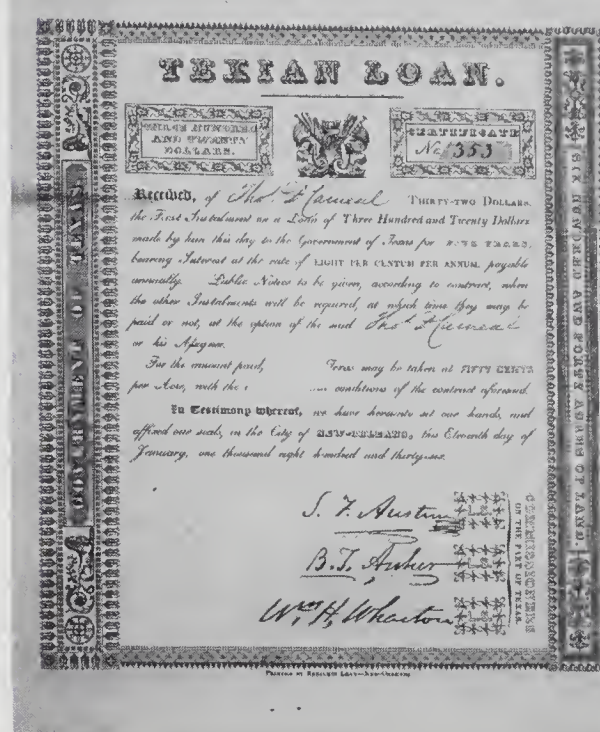 TEXIAN LOAN.
THREE HUNDRED
AND TWENTY
DOLLARS.
CERTIFICATE
No. 353
Received, of Thos. F. THIRTY-TWO DOLLARS,
the First Instalment on a Loan of Three Hundred and Twenty Dollars
made by him this day to the Government of Texas for FIVE YEARS,
bearing Interest at the rate of EIGHT PER CENTUM PER ANNUM, payable
annually. Public Notice to be given, according to contract, when
the other Instalments will be required, at which time they may be
paid or not, at the option of the said Thos. F.
or his Assigns.
For the amount paid, may be taken at FIFTY CENTS
per Acre, with the conditions of the contract aforesaid.
In Testimony whereof, we have hereunto set our hands, and
affixed our seals, in the City of NEW-ORLEANS, this Eleventh day of
January, one thousand eight hundred and thirty-six.
S. F. Austin
B. T. Archer
Wm. H. Wharton
COMMISSIONERS
ON THE PART OF TEXAS.
GOVERNMENT OF TEXAS.
SIX HUNDRED AND FORTY ACRES OF LAND.
PRINTED BY BENJAMIN LEVY—NEW-ORLEANS